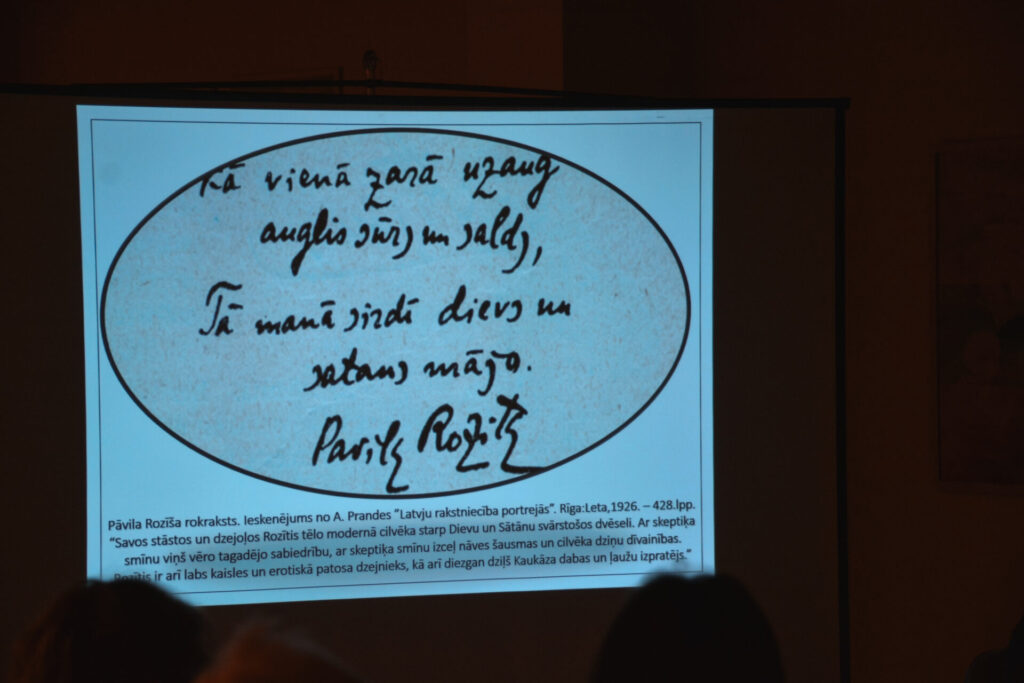 Kā vienā zarā uzaug
auglis sūrs un salds,
Tā manā sirdī dievs un
satans mājo.
Pavils Rozitis
Pāvila Rozīša rokraksts. Ieskenējums no A. Prandes “Latvju rakstniecība portrejās”. Rīga:Leta,1926. – 428.lpp.
“Savos stāstos un dzejoļos Rozītis tēlo modernā cilvēka starp Dievu un Sātānu svārstošos dvēseli. Ar skeptiķa
smīnu viņš vēro tagadējo sabiedrību, ar skeptiķa smīnu izceļ nāves šausmas un cilvēka dziņu dīvainības.
Rozītis ir arī labs kaisles un erotiskā patosa dzejnieks, kā arī diezgan dziļš Kaukāza dabas un ļaužu izpratējs.”